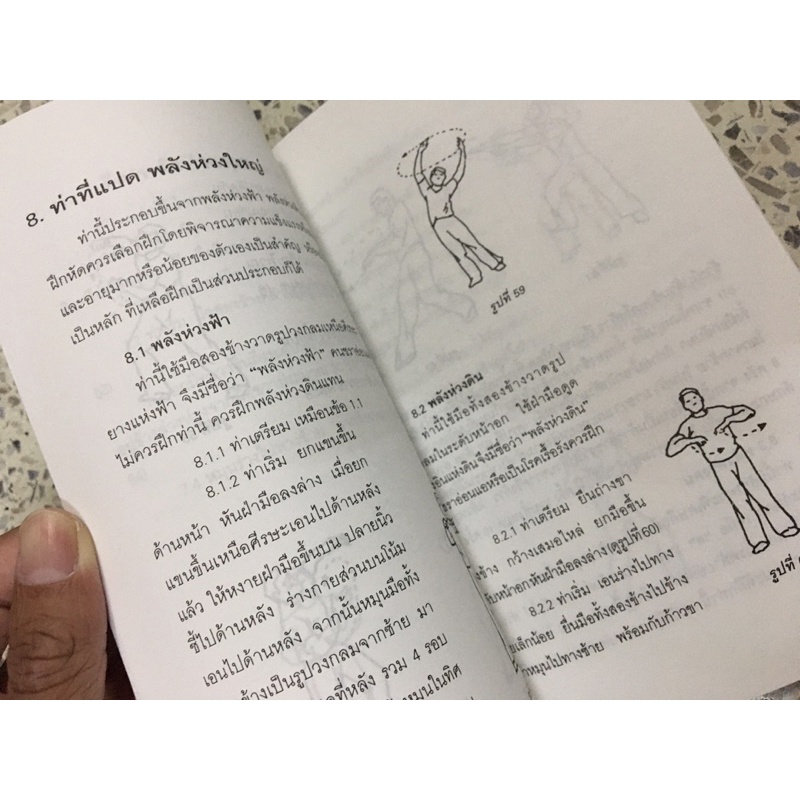 8. ท่าที่แปด พลังห่วงใหญ่
ท่านี้ประกอบขึ้นจากพลังห่วงฟ้า
ฝึกหัดควรเลือกฝึกโดยพิจารณาความแข็งแรง
และอายุมากหรือน้อยของตัวเองเป็นสำคัญ
เป็นหลัก ที่เหลือฝึกเป็นส่วนประกอบก็ได้
8.1 พลังห่วงฟ้า
ท่านี้ใช้มือสองข้างวาดรูปวงกลมเหนือศีรษะ
ยางแห่งฟ้า จึงมีชื่อว่า "พลังห่วงฟ้า"
ไม่ควรฝึกท่านี้ ควรฝึกพลังห่วงดินแทน
8.1.1 ท่าเตรียม เหมือนข้อ 1.1
8.1.2 ท่าเริ่ม ยกแขนขึ้น
ด้านหน้า หันฝ่ามือลงล่าง เมื่อยก
แขนขึ้นเหนือศีรษะเอนไปด้านหลัง
แล้ว ให้หงายฝ่ามือขึ้นบน ปลายนิ้ว
ชี้ไปด้านหลัง ร่างกายส่วนบนโน้ม
เอนไปด้านหลัง จากนั้นหมุนมือทั้ง
ข้างเป็นรูปวงกลมจากซ้าย มา
ที่หลัง รวม 4 รอบ
หมุนในทิศ
รูปที่ 59
8.2 พลังห่วงดิน
ท่านี้ใช้มือทั้งสองข้างวาดรูป
กลมในระดับหน้าอก ใช้ฝ่ามือดูด
แห่งดินจึงมีชื่อว่า "พลังห่วงดิน"
อ่อนแอหรือเป็นโรคเรื้อรังควรฝึก
8.2.1 ท่าเตรียม ยืนถ่างขา
ข้าง กว้างเสมอไหล่ ยกมือขึ้น
หน้าอกหันฝ่ามือลงล่าง(ดูรูปที่ 60)
8.2.2 ท่าเริ่ม เอนร่างไปทาง
เล็กน้อย ยื่นมือทั้งสองข้างไปข้าง
หมุนไปทางซ้าย พร้อมกับก้าวขา
รูปที่